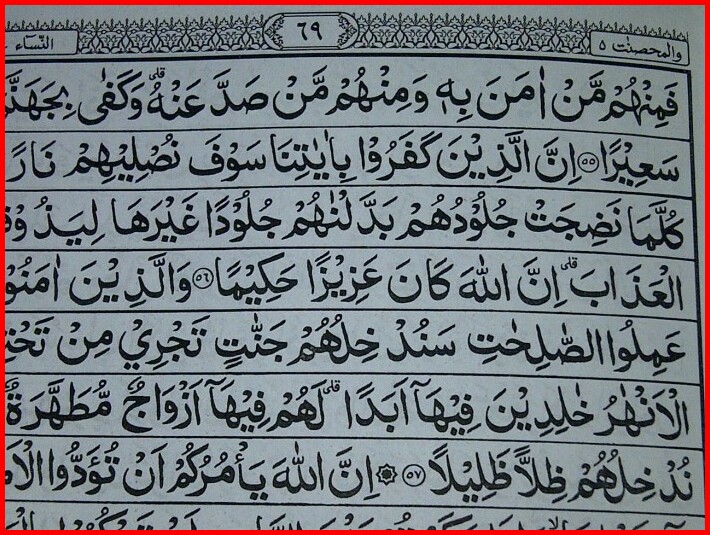 والمحصنت ٥ ٦٩ النساء
فَمِنْهُمْ مَّنْ اٰمَنَ بِهٖ وَمِنْهُمْ مَّنْ صَدَّ عَنْهُ ؕ وَكَفٰى بِجَهَنَّ
سَعِيْرًا ﴿٥٥﴾ اِنَّ الَّذِيْنَ كَفَرُوْا بِاٰيٰتِنَا سَوْفَ نُصْلِيْهِمْ نَارً
كُلَّمَا نَضِجَتْ جُلُوْدُهُمْ بَدَّلْنٰهُمْ جُلُوْدًا غَيْرَهَا لِيَذُوْقُ
الْعَذَابَ ؕ اِنَّ اللّٰهَ كَانَ عَزِيْزًا حَكِيْمًا ﴿٥٦﴾ وَالَّذِيْنَ اٰمَنُوْ
عَمِلُوا الصّٰلِحٰتِ سَنُدْخِلُهُمْ جَنّٰتٍ تَجْرِيْ مِنْ تَحْتِ
الْاَنْهٰرُ خٰلِدِيْنَ فِيْهَآ اَبَدًا ؕ لَهُمْ فِيْهَآ اَزْوَاجٌ مُّطَهَّرَةٌ
نُدْخِلُهُمْ ظِلًّا ظَلِيْلًا ﴿٥٧﴾ ۞ اِنَّ اللّٰهَ يَاْمُرُكُمْ اَنْ تُؤَدُّوا الْاَم